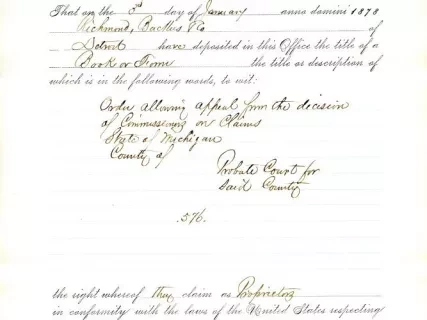 That on the 3rd day of January anno domini 1878
Richmond, Backus & Co of
Detroit have deposited in this Office the title of a
Book or Form the title or description of
which is in the following words, to wit:
Order allowing appeal from the decision
of Commissioners on Claims
State of Michigan
County of
Probate Court for
Said County
576.
the right whereof they claim as Proprietors
in conformity with the laws of the United States respecting